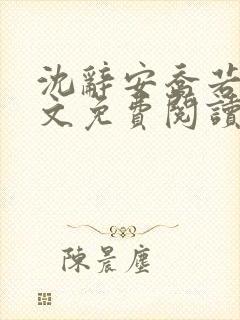 沈辭安喬若
文免費閱讀
陳晨塵